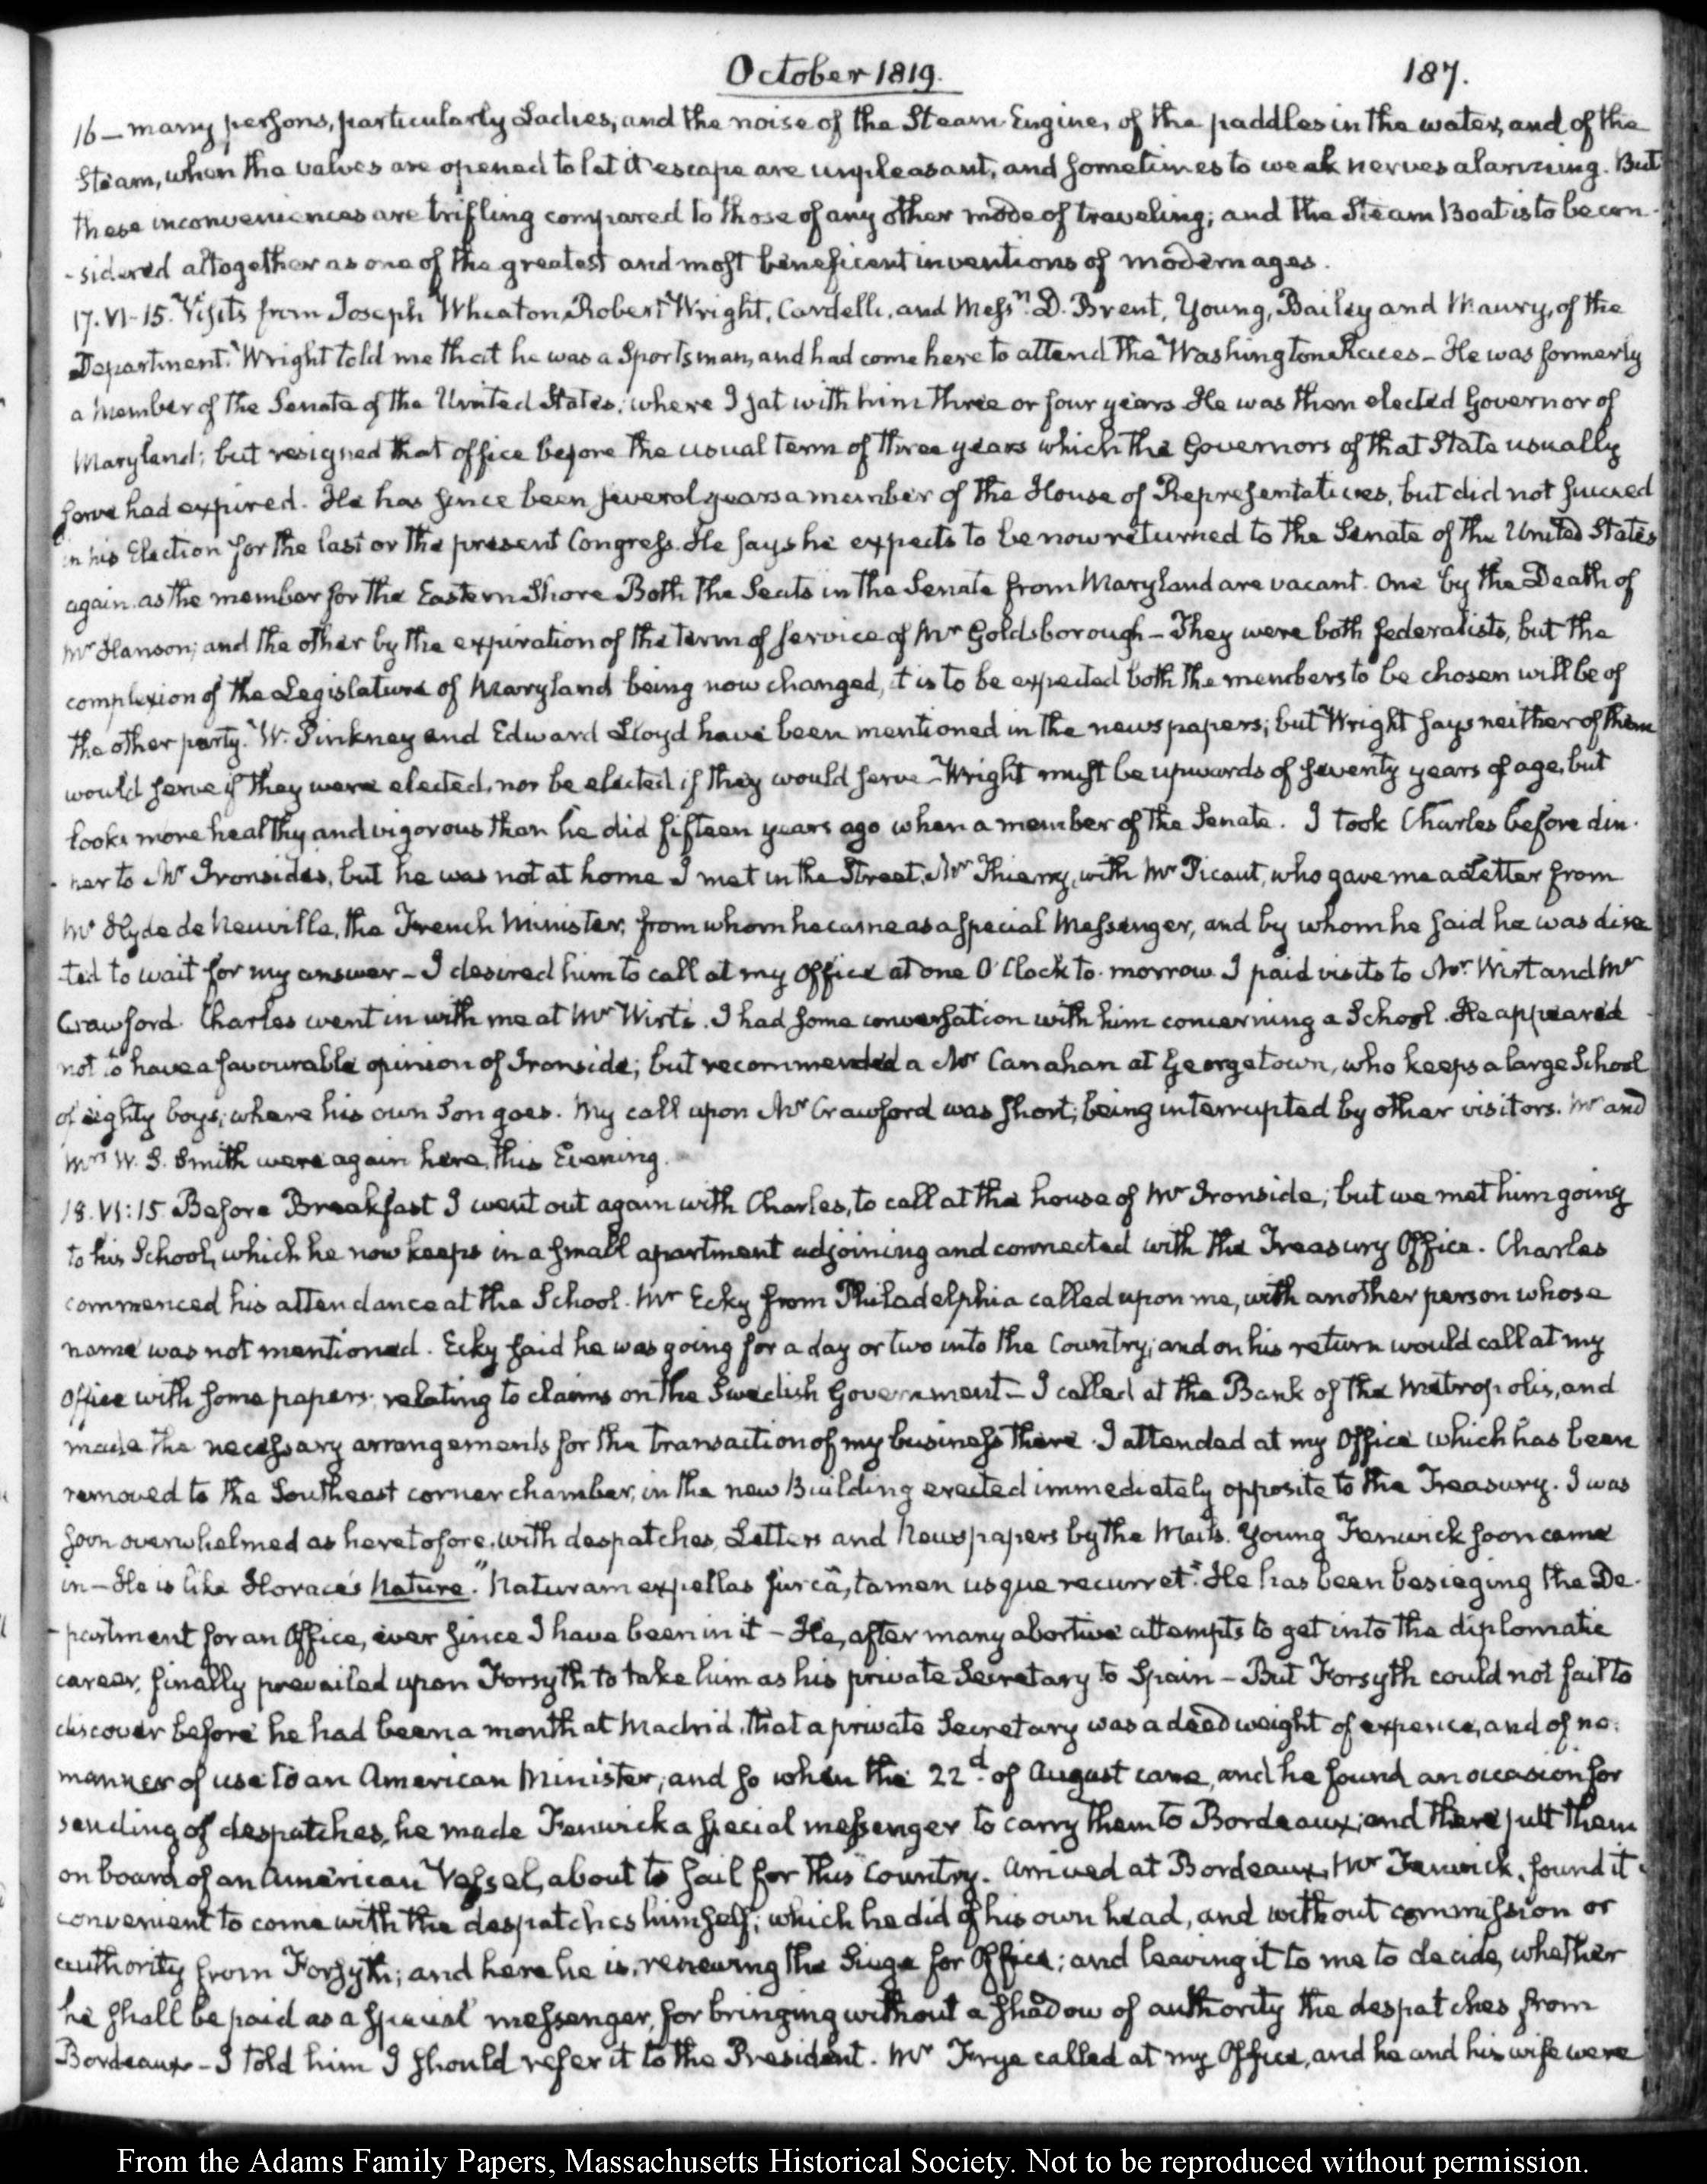 October 1819.
187.
16 — many persons, particularly Ladies, and the noise of the Steam Engine, of the paddles in the water, and of the
Steam, when the valves are opened to let it escape are unpleasant, and sometimes to weak nerves alarming. But
these inconveniences are trifling compared to those of any other mode of traveling; and the Steam Boat is to be con-
-sidered altogether as one of the greatest and most beneficent inventions of modern ages.
17. VI-15. Visits from Joseph Wheaton, Robert Wright, Cardelli, and Messrs. D. Brent, Young, Bailey and Maury, of the
Department. Wright told me that he was a Sportsman, and had come here to attend the Washington Races — He was formerly
a Member of the Senate of the United States, where I sat with him three or four years. He was then elected Governor of
Maryland; but resigned that office before the usual term of three years which the Governors of that State usually
serve had expired. He has since been several years a member of the House of Representatives, but did not succeed
in his Election for the last or the present Congress. He says he expects to be now returned to the Senate of the United States
again, as the member for the Eastern Shore Both the Seats in the Senate from Maryland are vacant. One by the Death of
Mr Hanson; and the other by the expiration of the term of service of Mr Goldsborough — They were both federalists, but the
complexion of the Legislature of Maryland being now changed, it is to be expected both the members to be chosen will be of
the other party. W. Pinkney and Edward Lloyd have been mentioned in the newspapers; but Wright says neither of them
would serve if they were elected, nor be elected if they would serve — Wright must be upwards of seventy years of age, but
looks more healthy and vigorous than he did fifteen years ago when a member of the Senate. I took Charles before din-
-ner to Mr Ironsides, but he was not at home I met in the Street, Mr Thierry, with Mr Picaut, who gave me a Letter from
Mr Hyde de Neuville, the French Minister, from whom he came as a special Messenger, and by whom he said he was direc
-ted to wait for my answer — I desired him to call at my Office at one O'Clock to-morrow. I paid visits to Mr. Wirt and Mr
Crawford. Charles went in with me at Mr Wirt's. I had some conversation with him concerning a School. He appeared
not to have a favourable opinion of Ironside; but recommended a Mr Canahan at Georgetown, who keeps a large School
of eighty boys; where his own Son goes. My call upon Mr Crawford was short; being interrupted by other visitors. Mr and
Mrs W. S. Smith were again here, this Evening.
18. VI:15. Before Breakfast I went out again with Charles, to call at the house of Mr Ironside; but we met him going
to his School, which he now keeps in a small apartment adjoining and connected with the Treasury Office. Charles
commenced his attendance at the School. Mr Ecky from Philadelphia called upon me, with another person whose
name was not mentioned. Ecky said he was going for a day or two into the Country; and on his return would call at my
Office with some papers, relating to claims on the Swedish Government — I called at the Bank of the Metropolis, and
made the necessary arrangements for the transaction of my business there. I attended at my Office which has been
removed to the Southeast corner chamber, in the new Building erected immediately opposite to the Treasury. I was
soon overwhelmed as heretofore, with despatches, Letters and Newspapers by the Mails. Young Fenwick soon came
in — He is like Horace's Nature. "Naturam expellas furcâ, tamen usque recurret." He has been besieging the De-
-partment for an Office, ever since I have been in it — He, after many abortive attempts to get into the diplomatic
career, finally prevailed upon Forsyth to take him as his private Secretary to Spain — But Forsyth could not fail to
discover before he had been a month at Madrid, that a private Secretary was a dead weight of expence, and of no
manner of use to an American Minister, and so when the 22d. of August came, and he found an occasion for
sending of despatches, he made Fenwick a special messenger to carry them to Bordeaux; and there put them
on board of an American Vessel, about to sail for this Country. Arrived at Bordeaux, Mr Fenwick, found it
convenient to come with the despatches himself; which he did of his own head, and without commission or
authority from Forsyth; and here he is, renewing the Siege for Office; and leaving it to me to decide, whether
he shall be paid as a special messenger, for bringing without a shadow of authority the despatches from
Bordeaux — I told him I should refer it to the President. Mr Frye called at my Office, and he and his wife were
From the Adams Family Papers, Massachusetts Historical Society. Not to be reproduced without permission.